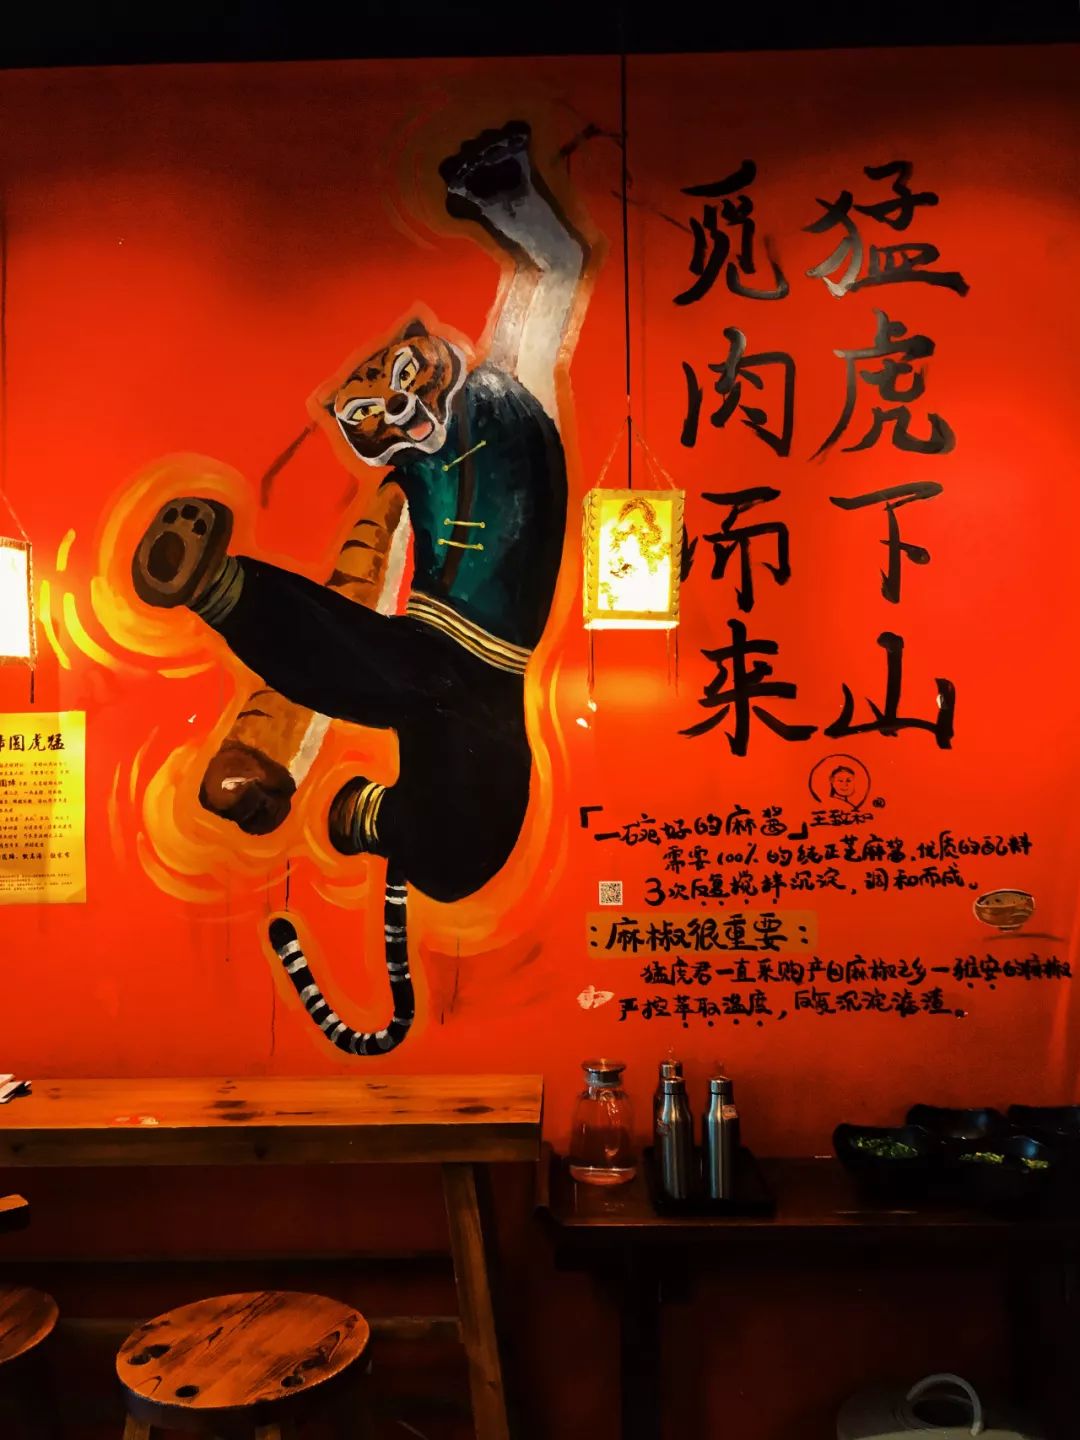 猛虎下山
觅肉而来
王致和
「一碗好的麻酱」
需要100%的纯正芝麻酱，优质的配料
3次反复搅拌沉淀，调和而成。
:麻椒很重要:
猛虎君一直采购产自麻椒之乡一雅安的麻椒
严控萃取温度，反复沉淀滤渣。
圆虎猛